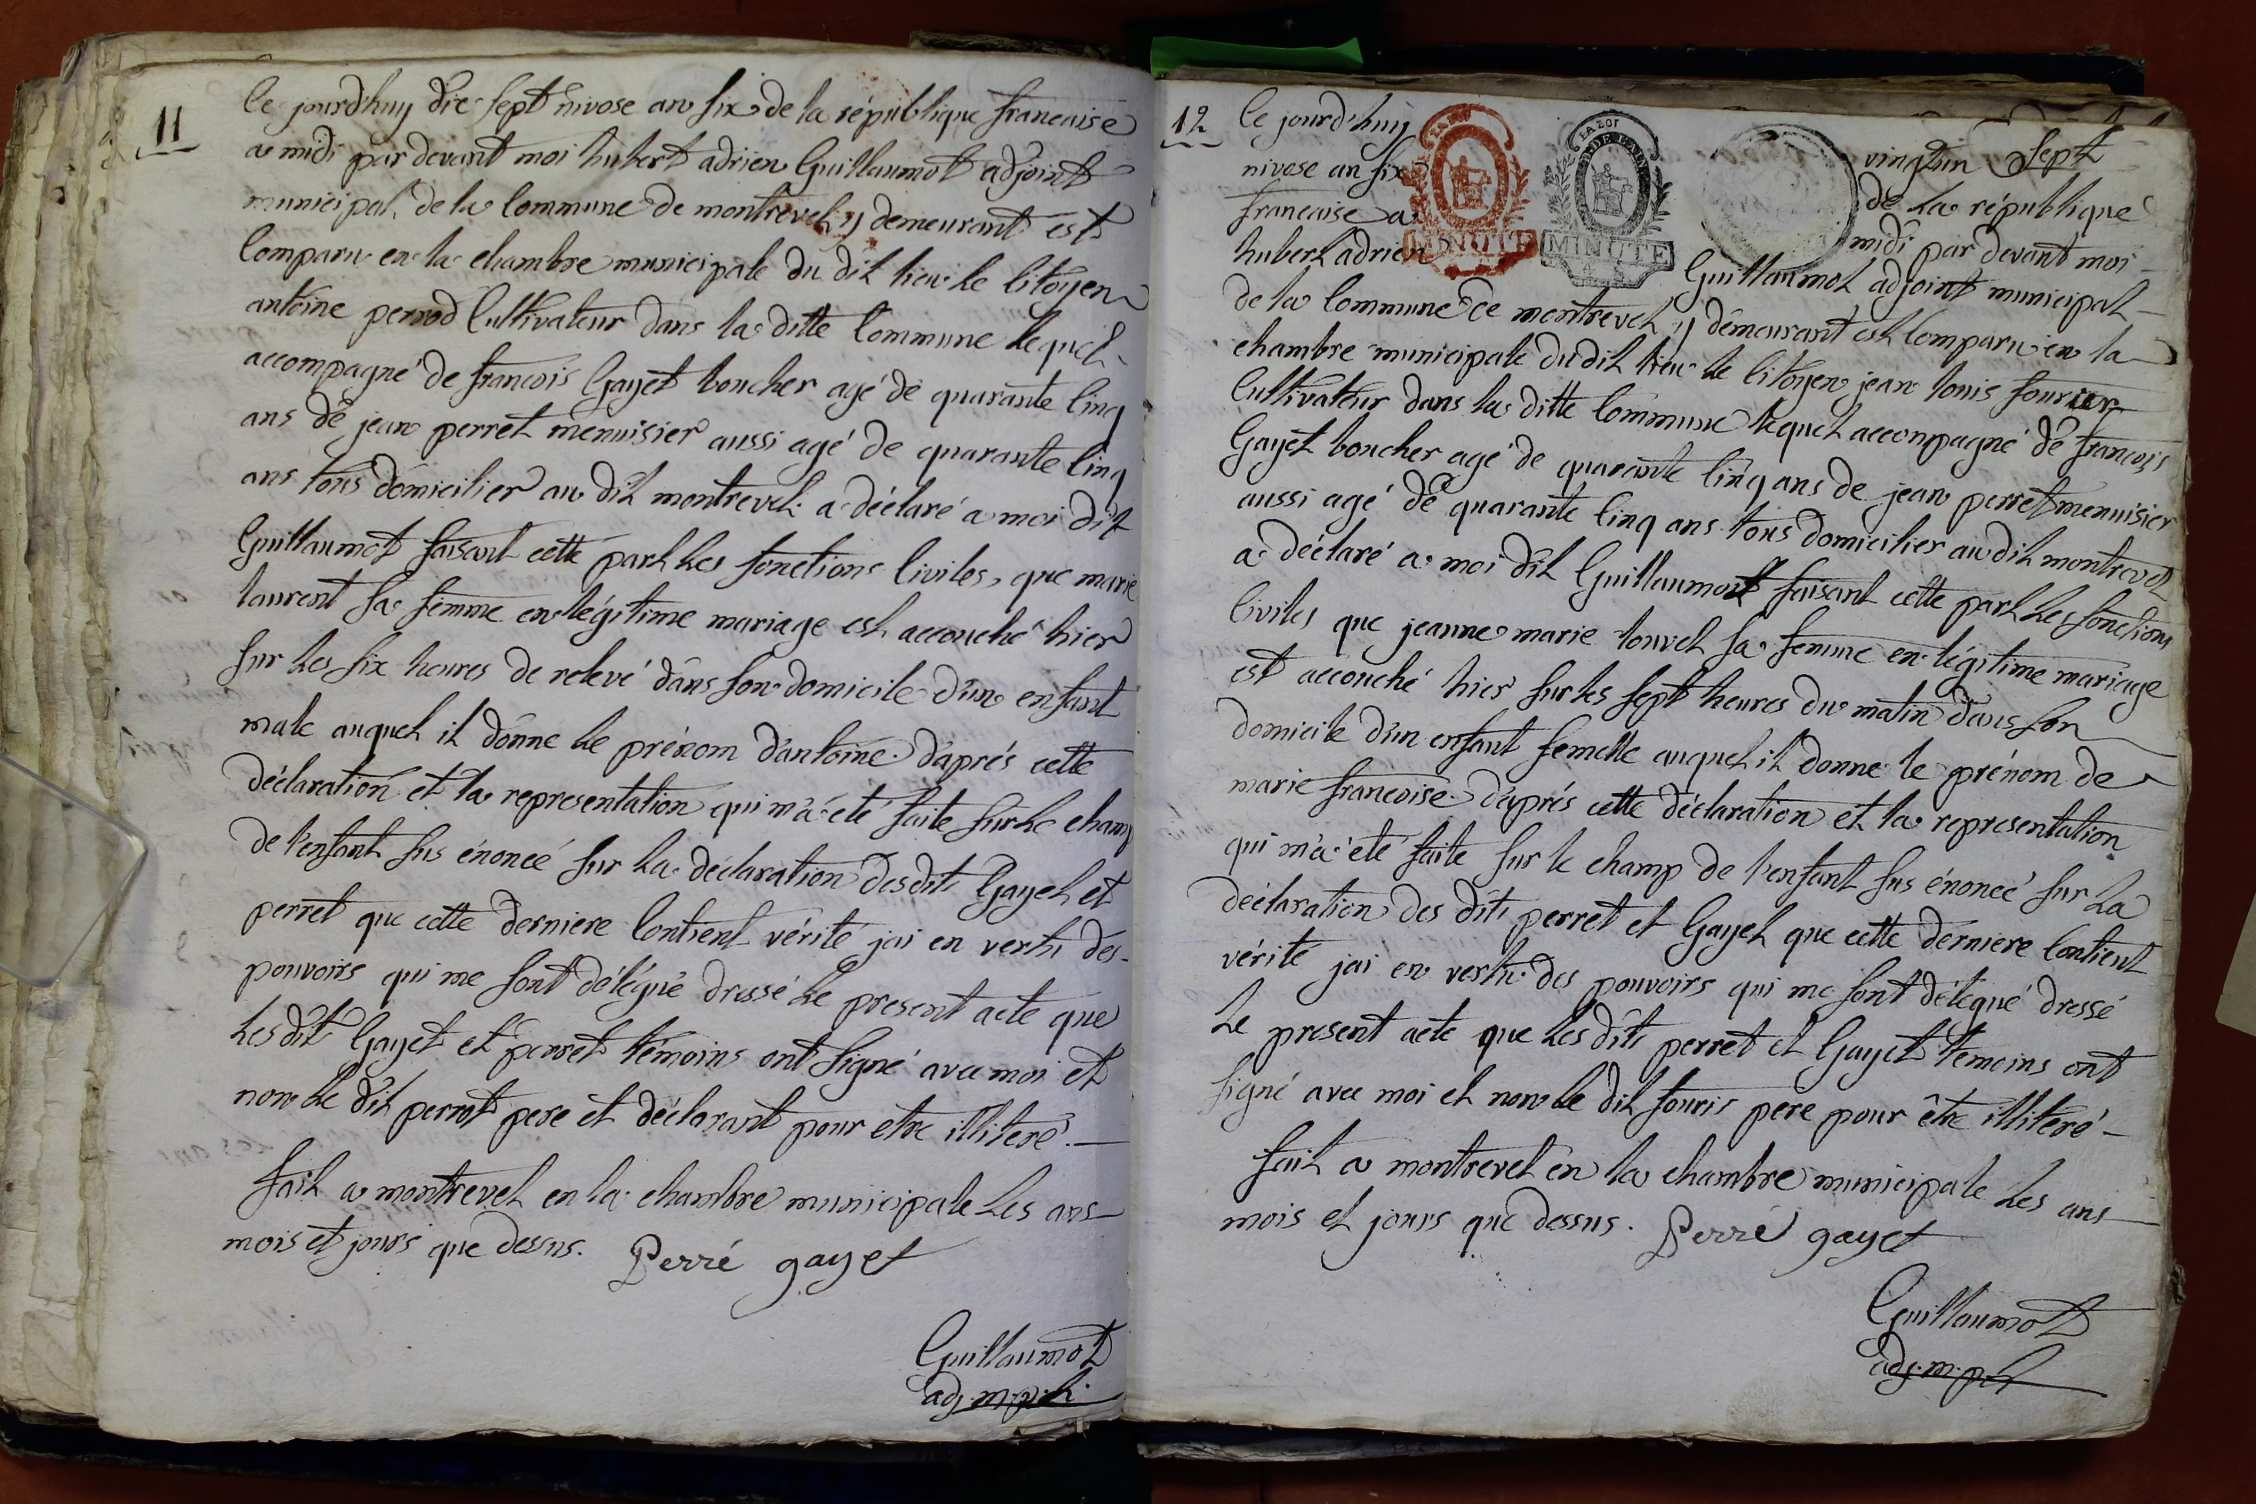 11
Ce jourd'huy dix sept nivose an six de la république francaise
a midi par devant moi hubert adrien Guillaumot adjoint
municipal de la Commune de montrevel y demeurant est
Comparu en la chambre municipale du dit lieu le Citoyen
antoine perrod Cultivateur dans la ditte Commune lequel
accompagné de francois Gayet boucher agé de quarante Cinq
ans de jean perret menuisier aussi agé de quarante Cinq
ans tous domicilier au dit montrevel a déclaré a moi dit
Guillaumot faisant cette part les fonctions Civiles, que marie
laurent sa femme en légitime mariage est accouché hier
sur les six heures de relevé dans son domicile d'un enfant
male auquel il donne le prénom d'antoine. d'aprés cette
déclaration et la representation qui m'a été faite sur le champ
de l'enfant sus énoncé sur la déclaration desdits Gayet et
perret que cette derniere Contient vérité jai en vertu des
pouvoirs qui me sont délégué dressé le present acte que
les dit Gayet et perret témoins ont signé avec moi et
non le dit perrot pere et déclarant pour etre illiteré. —
fait a montrevel en la chambre municipale les ans
mois et jours que dessus. Perré gayet
Guillaumot
adj. m. pl.
12
Ce jourd'huy vingtun Sept
nivose an six de la république
francaise a midi par devant moi
hubert adrien Guillaumot adjoint municipal
MINUTE MINUTE
de la Commune de montrevel y demeurant est Comparu en la
chambre municipale du dit lieu le Citoyen jean louis fourier
Cultivateur dans la ditte Commune lequel accompagné de francois
Gayet boucher agé de quarante Cinq ans de jean perret menuisier
aussi agé de quarante Cinq ans tous domicilier au dit montrevel
a déclaré a moi dit Guillaumot faisant cette part les fonctions
Civiles que jeanne marie louvel sa femme en légitime mariage
est accouché hier sur les sept heures du matin dans son
domicile d'un enfant femelle auquel il donne le prénom de
marie francoise. d'aprés cette déclaration et la representation
qui m'a été faite sur le champ de l'enfant sus énoncé sur la
déclaration des dits perret et Gayet que cette derniere Contient
vérité jai en vertu des pouvoirs qui me sont délegué dressé
le present acte que les dits perret et Gayet temoins ont
signé avec moi et non le dit fouris pere pour être illiteré —
fait a montrevel en la chambre municipale les ans
mois et jours que dessus. Perré gayet
Guillaumot
adj. m. pl